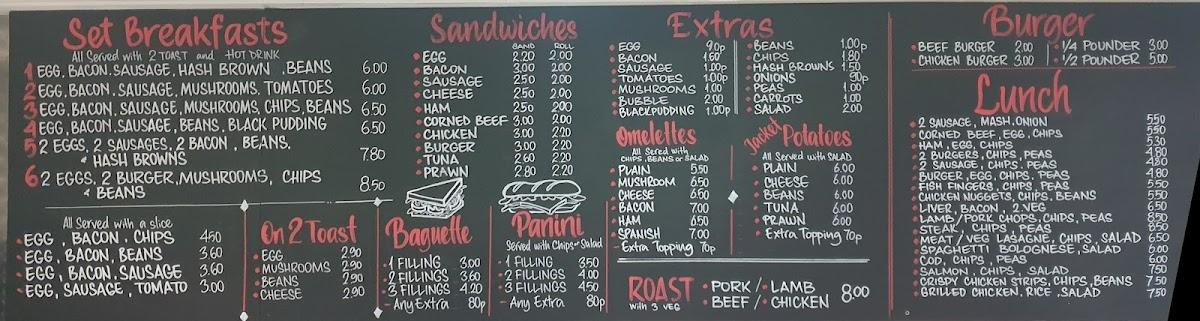 Set Breakfasts
All Served with 2 TOAST and HOT DRINK
1 EGG, BACON, SAUSAGE, HASH BROWN, BEANS 6.00
2 EGG, BACON, SAUSAGE, MUSHROOMS, TOMATOES 6.00
3 EGG, BACON, SAUSAGE, MUSHROOMS, CHIPS, BEANS 6.50
4 EGG, BACON, SAUSAGE, BEANS, BLACK PUDDING 6.50
5 2 EGGS, 2 SAUSAGES, 2 BACON, BEANS,
& HASH BROWNS 7.80
6 2 EGGS, 2 BURGER, MUSHROOMS, CHIPS
& BEANS 8.50
All Served with a slice
EGG, BACON, CHIPS 4.50
EGG, BACON, BEANS 3.60
EGG, BACON, SAUSAGE 3.60
EGG, SAUSAGE, TOMATO 3.00
On 2 Toast
EGG 2.90
MUSHROOMS 2.90
BEANS 2.90
CHEESE 2.90
Sandwiches
SAND ROLL
EGG 2.20 2.00
BACON 3.00 2.00
SAUSAGE 2.50 2.00
CHEESE 2.50 2.00
HAM 2.50 2.00
CORNED BEEF 3.00 2.00
CHICKEN 3.00 2.20
BURGER 3.00 2.20
TUNA 2.60 2.20
PRAWN 2.80 2.20
Baguette
1 FILLING 3.00
2 FILLINGS 3.60
3 FILLINGS 4.20
- Any Extra 80p
Panini
Served with Chips or Salad
1 FILLING 3.50
2 FILLINGS 4.00
3 FILLINGS 4.50
- Any Extra 80p
Extras
EGG 90p
BACON 1.60
SAUSAGE 1.00p
TOMATOES 1.00p
MUSHROOMS 1.00p
BUBBLE 2.00
BLACKPUDDING 1.00p
BEANS 1.00p
CHIPS 1.80
HASH BROWNS 1.50
ONIONS 90p
PEAS 1.00
CARROTS 1.00
SALAD 2.00
Omelettes
All Sered with
CHIPS, BEANS or SALAD
PLAIN 5.50
MUSHROOM 6.50
CHEESE 6.50
BACON 7.00
HAM 6.50
SPANISH 7.00
- Extra Topping 70p
Jacket Potatoes
All Served with SALAD
PLAIN 6.00
CHEESE 6.00
BEANS 6.00
TUNA 6.00
PRAWN 6.00
Extra Topping 70p
ROAST
with 3 VEG
PORK / LAMB
BEEF / CHICKEN 8.00
Burger
BEEF BURGER 2.00
CHICKEN BURGER 3.00
1/4 POUNDER 3.00
1/2 POUNDER 5.00
Lunch
2 SAUSAGE, MASH, ONION 5.50
CORNED BEEF, EGG, CHIPS 5.50
HAM, EGG, CHIPS 5.30
2 BURGERS, CHIPS, PEAS 4.80
2 SAUSAGE, CHIPS, PEAS 4.80
BURGER, EGG, CHIPS, PEAS 4.80
FISH FINGERS, CHIPS, PEAS 5.50
CHICKEN NUGGETS, CHIPS, BEANS 5.50
LIVER, BACON, 2 VEG 6.50
LAMB/PORK CHOPS, CHIPS, PEAS 8.50
STEAK, CHIPS, PEAS 8.50
MEAT/VEG LASAGNE, CHIPS, SALAD 6.50
SPAGHETTI BOLOGNESE, SALAD 6.00
COD, CHIPS, PEAS 6.00
SALMON, CHIPS, SALAD 7.50
CRISPY CHICKEN STRIPS, CHIPS, BEANS 7.50
GRILLED CHICKEN, RICE, SALAD 7.50